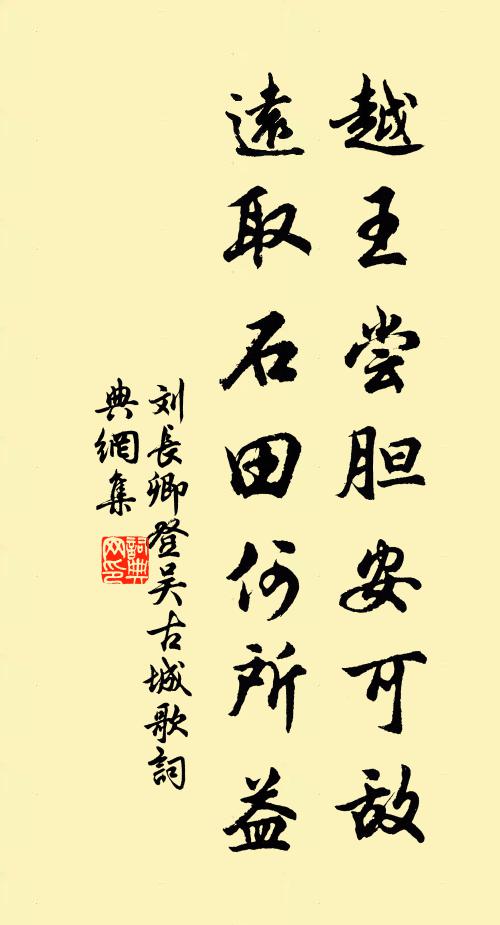 越王尝胆安可敌
遠取石田何所益
刘長卿登吴古城歌詞
典網集
詞典
网印